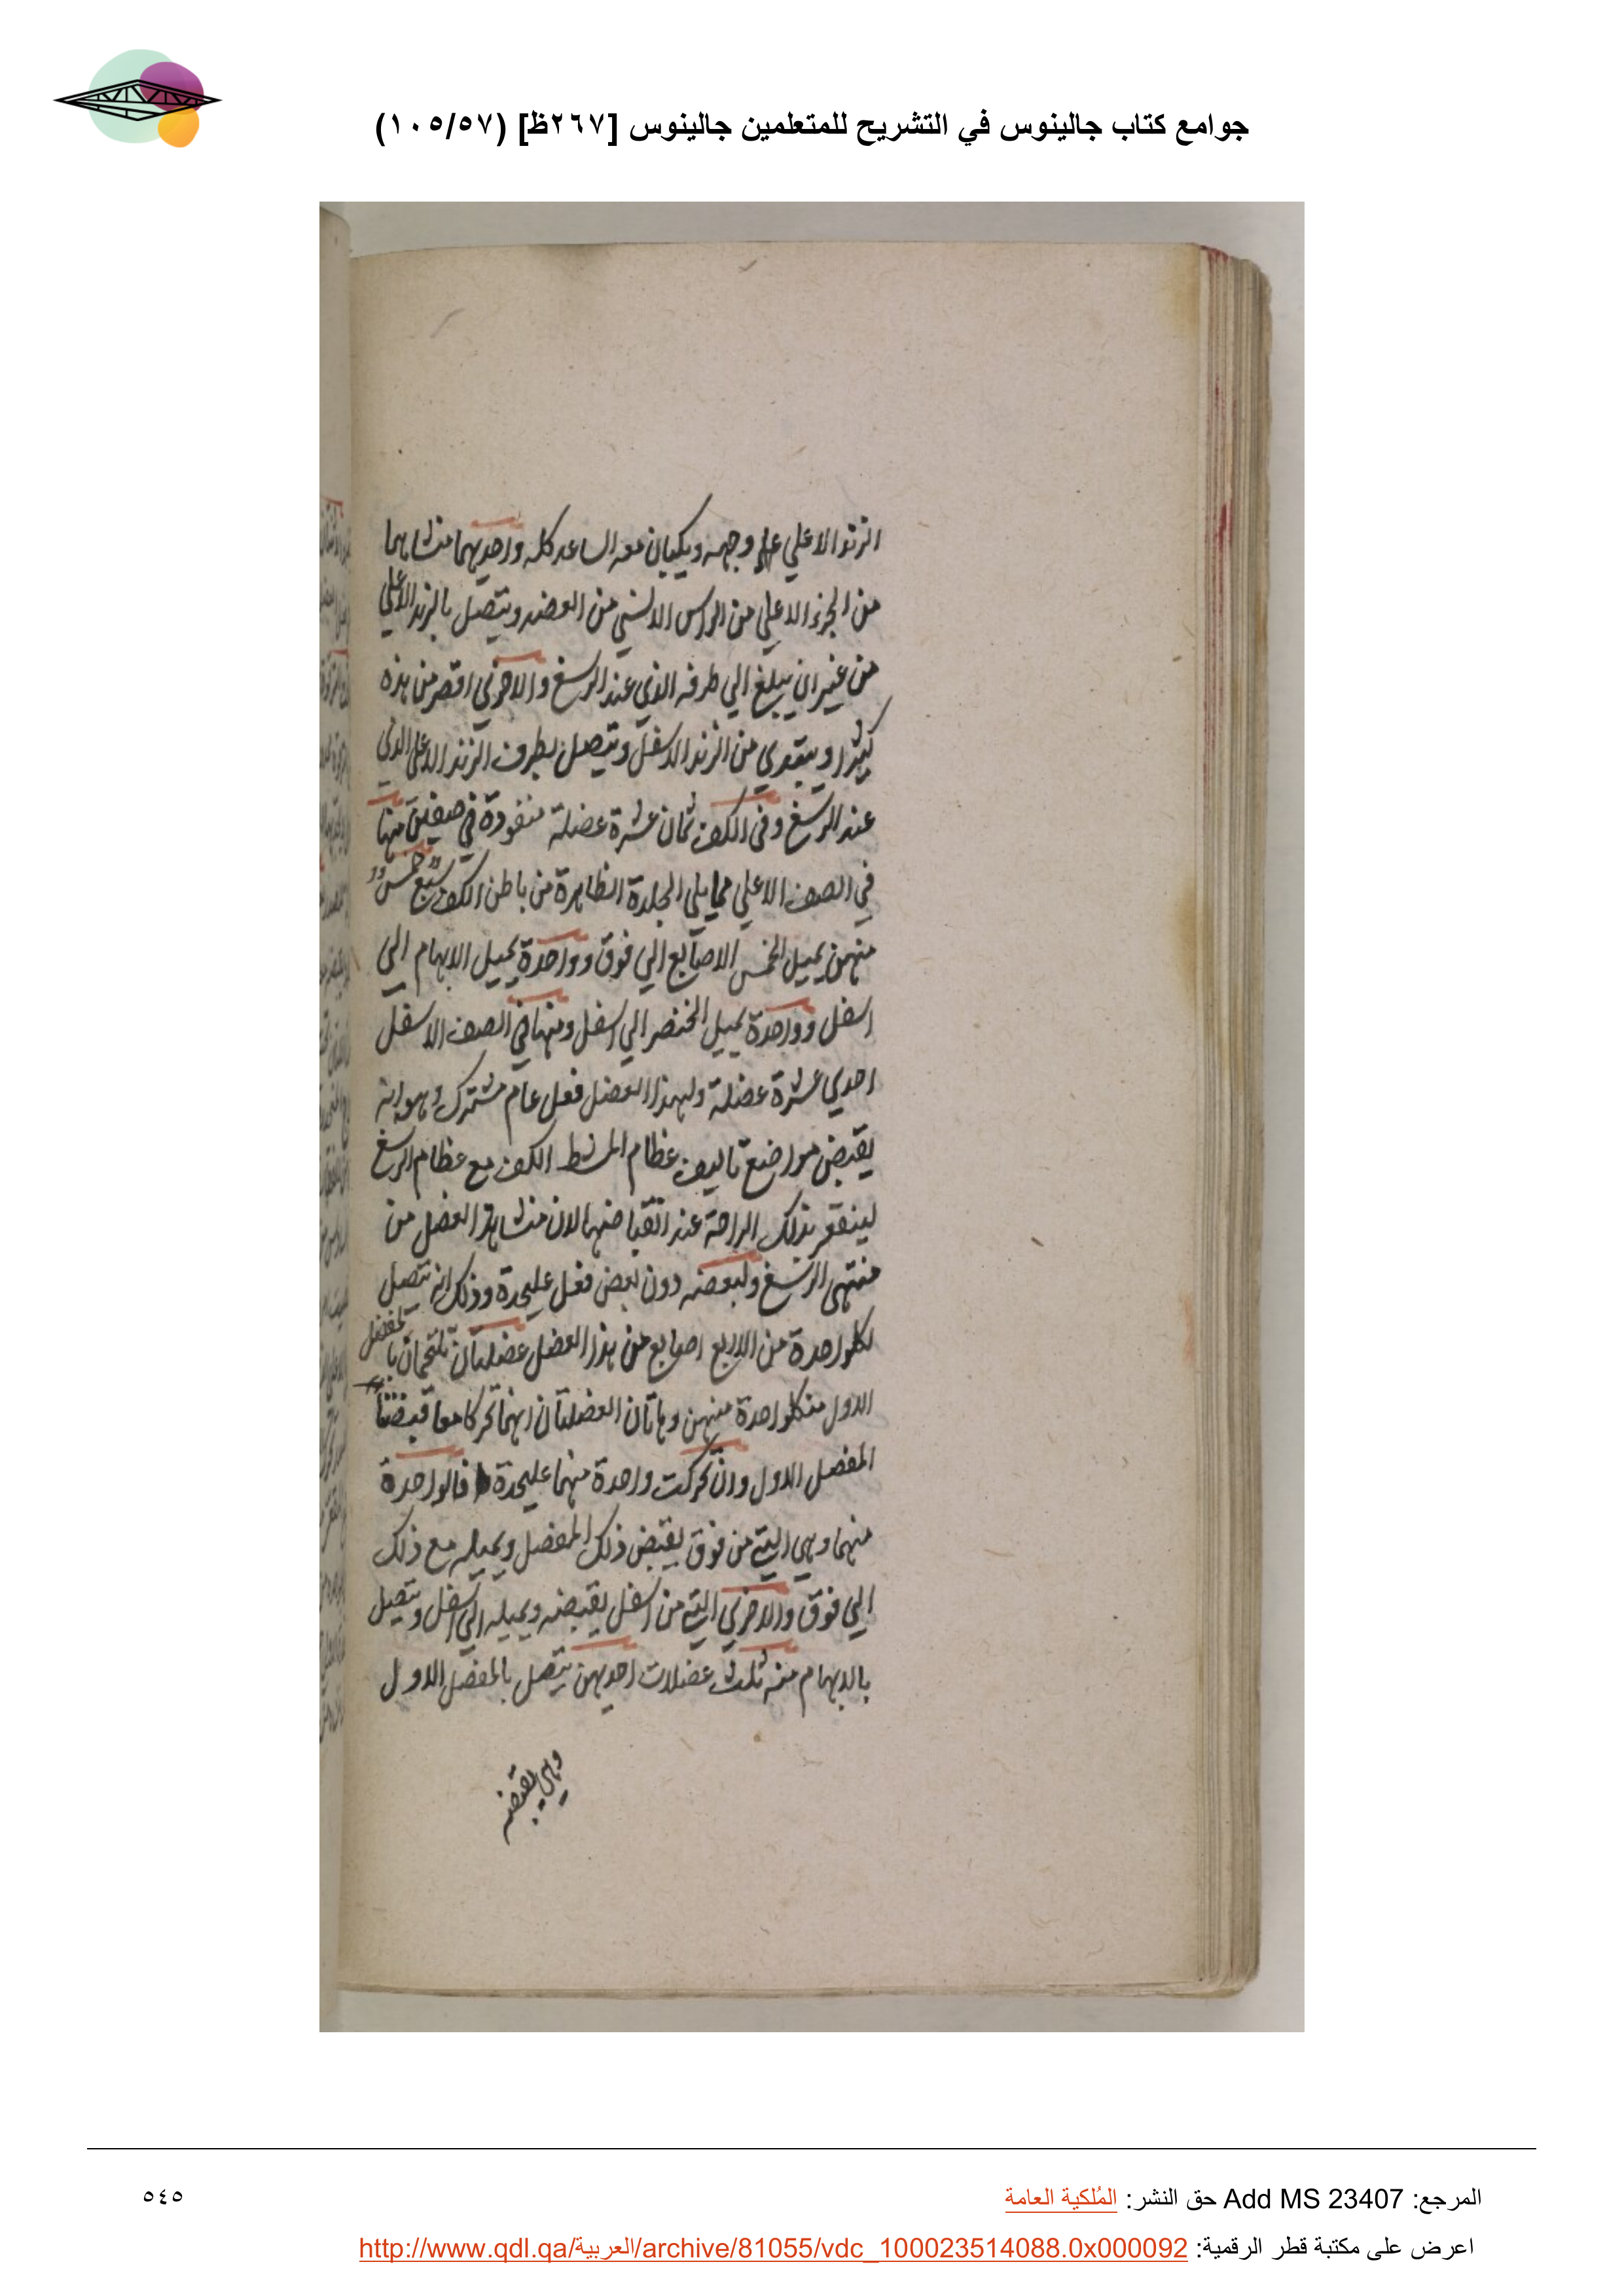 جوامع كتاب جالينوس في التشريح للمتعلمين جالينوس [٢٦٧ظ] (١٠٥/٥٧)
الزند الاعلي علي وجهه ويكبان معه الساعد كله واحديهما منشاهما
من الجزء الاعلي من الراس الانسي من العضد ويتصل بالزند الاعلي
من غير ان يبلغ الي طرفه الذي عند الرسغ والاخري اقصر من هذه
كثيرا ويبتدي من الزند الاسفل ويتصل بطرف الزند الاعلي الذي
عند الرسغ وفي الكف ثمان عشرة عضلة منضودة في صفين منها
في الصف الاعلي مما يلي الجلدة الظاهرة من باطن الكف سبع خمس
منهن يميل الخمس الاصابع الي فوق وواحدة يميل الابهام الي
اسفل وواحدة يميل الخنصر الي اسفل ومنها في الصف الاسفل
احدي عشرة عضلة ولهذا العضل فعل عام مشترك وهو انه
يقبض مواضع تاليف عظام المشط الكف مع عظام الرسغ
ليتقعر بذلك الراحة عند انقباضها لان منشا هذا العضل من
منتهي الرسغ ولبعضه دون بعض فعل عليحدة وذلك انه يتصل
لكلواحدة من الاربع اصابع من هذا العضل عضلتان تلتحمان بالمفصل
الاول من كلواحدة منهن وهاتان العضلتان انهما تحركا معا قبضتا
المفصل الاول وان تحركت واحدة منهما عليحدة فالواحدة
منهما وهي التي من فوق يقبض ذلك المفصل ويميله مع ذلك
الي فوق والاخري التي من اسفل يقبضه ويميله الي اسفل ويتصل
بالابهام منه ثلث عضلات احديهن يتصل بالمفصل الاول
وهي يقبضه
المرجع: Add MS 23407 حق النشر: المُلكية العامة
٥٤٥
اعرض على مكتبة قطر الرقمية: http://www.qdl.qa/العربية/archive/81055/vdc_100023514088.0x000092